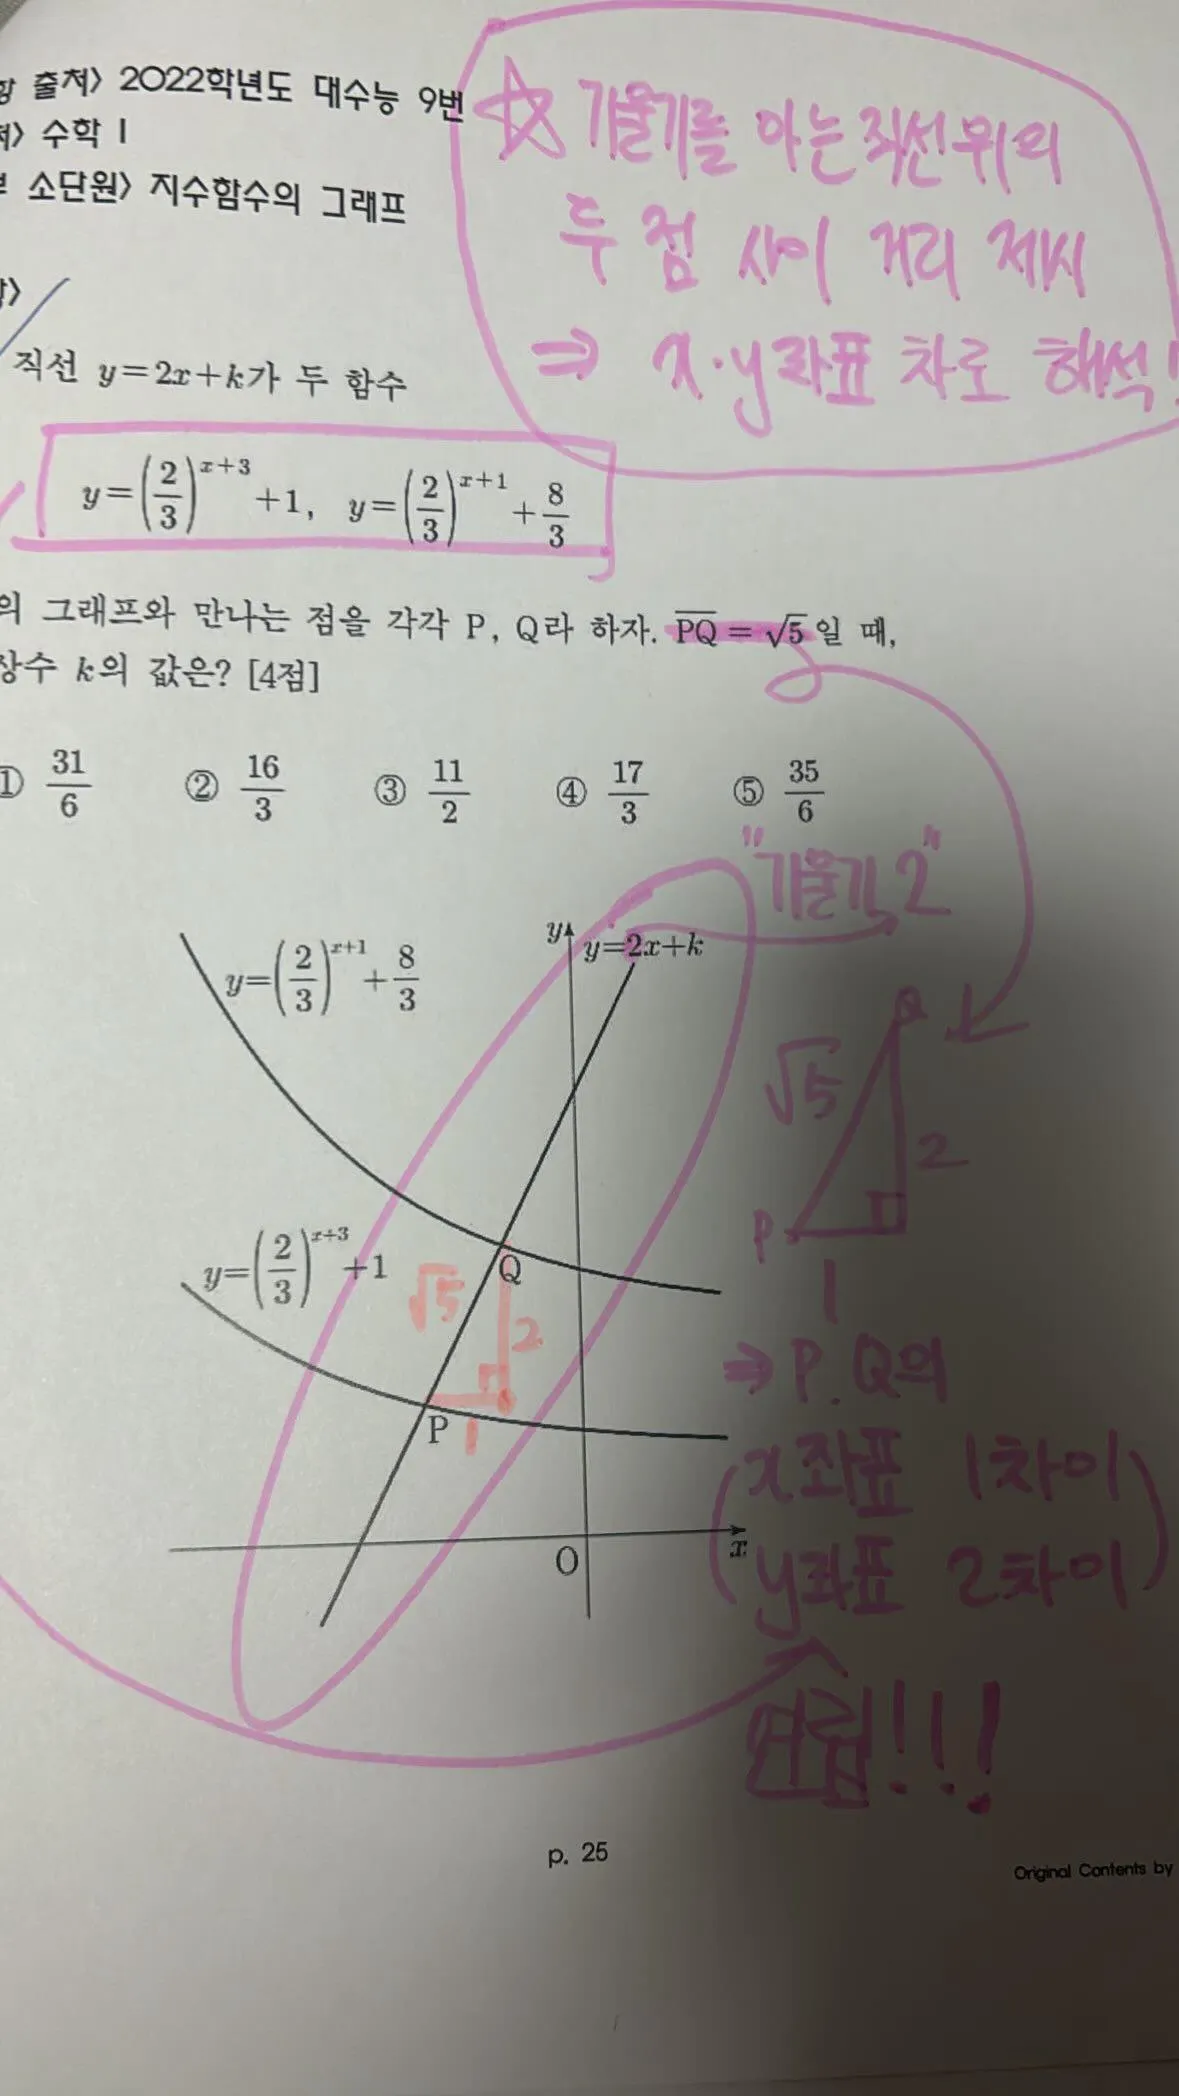 출처> 2022학년도 대수능 9번
> 수학 I
소단원> 지수함수의 그래프
>
☆ 기울기를 아는 직선 위의
두 점 사이 거리 제시
⇒ x·y좌표 차로 해석!
직선 y=2x+k가 두 함수
y=(2/3)^(x+3)+1, y=(2/3)^(x+1)+8/3
의 그래프와 만나는 점을 각각 P, Q라 하자. PQ=√5일 때,
상수 k의 값은? [4점]
① 31/6 ② 16/3 ③ 11/2 ④ 17/3 ⑤ 35/6
"기울기 2"
y
y=2x+k
y=(2/3)^(x+1)+8/3
Q
√5
2
P
1
y=(2/3)^(x+3)+1
Q
√5
2
P
1
⇒ P.Q의
x좌표 1차이
y좌표 2차이
O
x
p. 25
Original Contents by